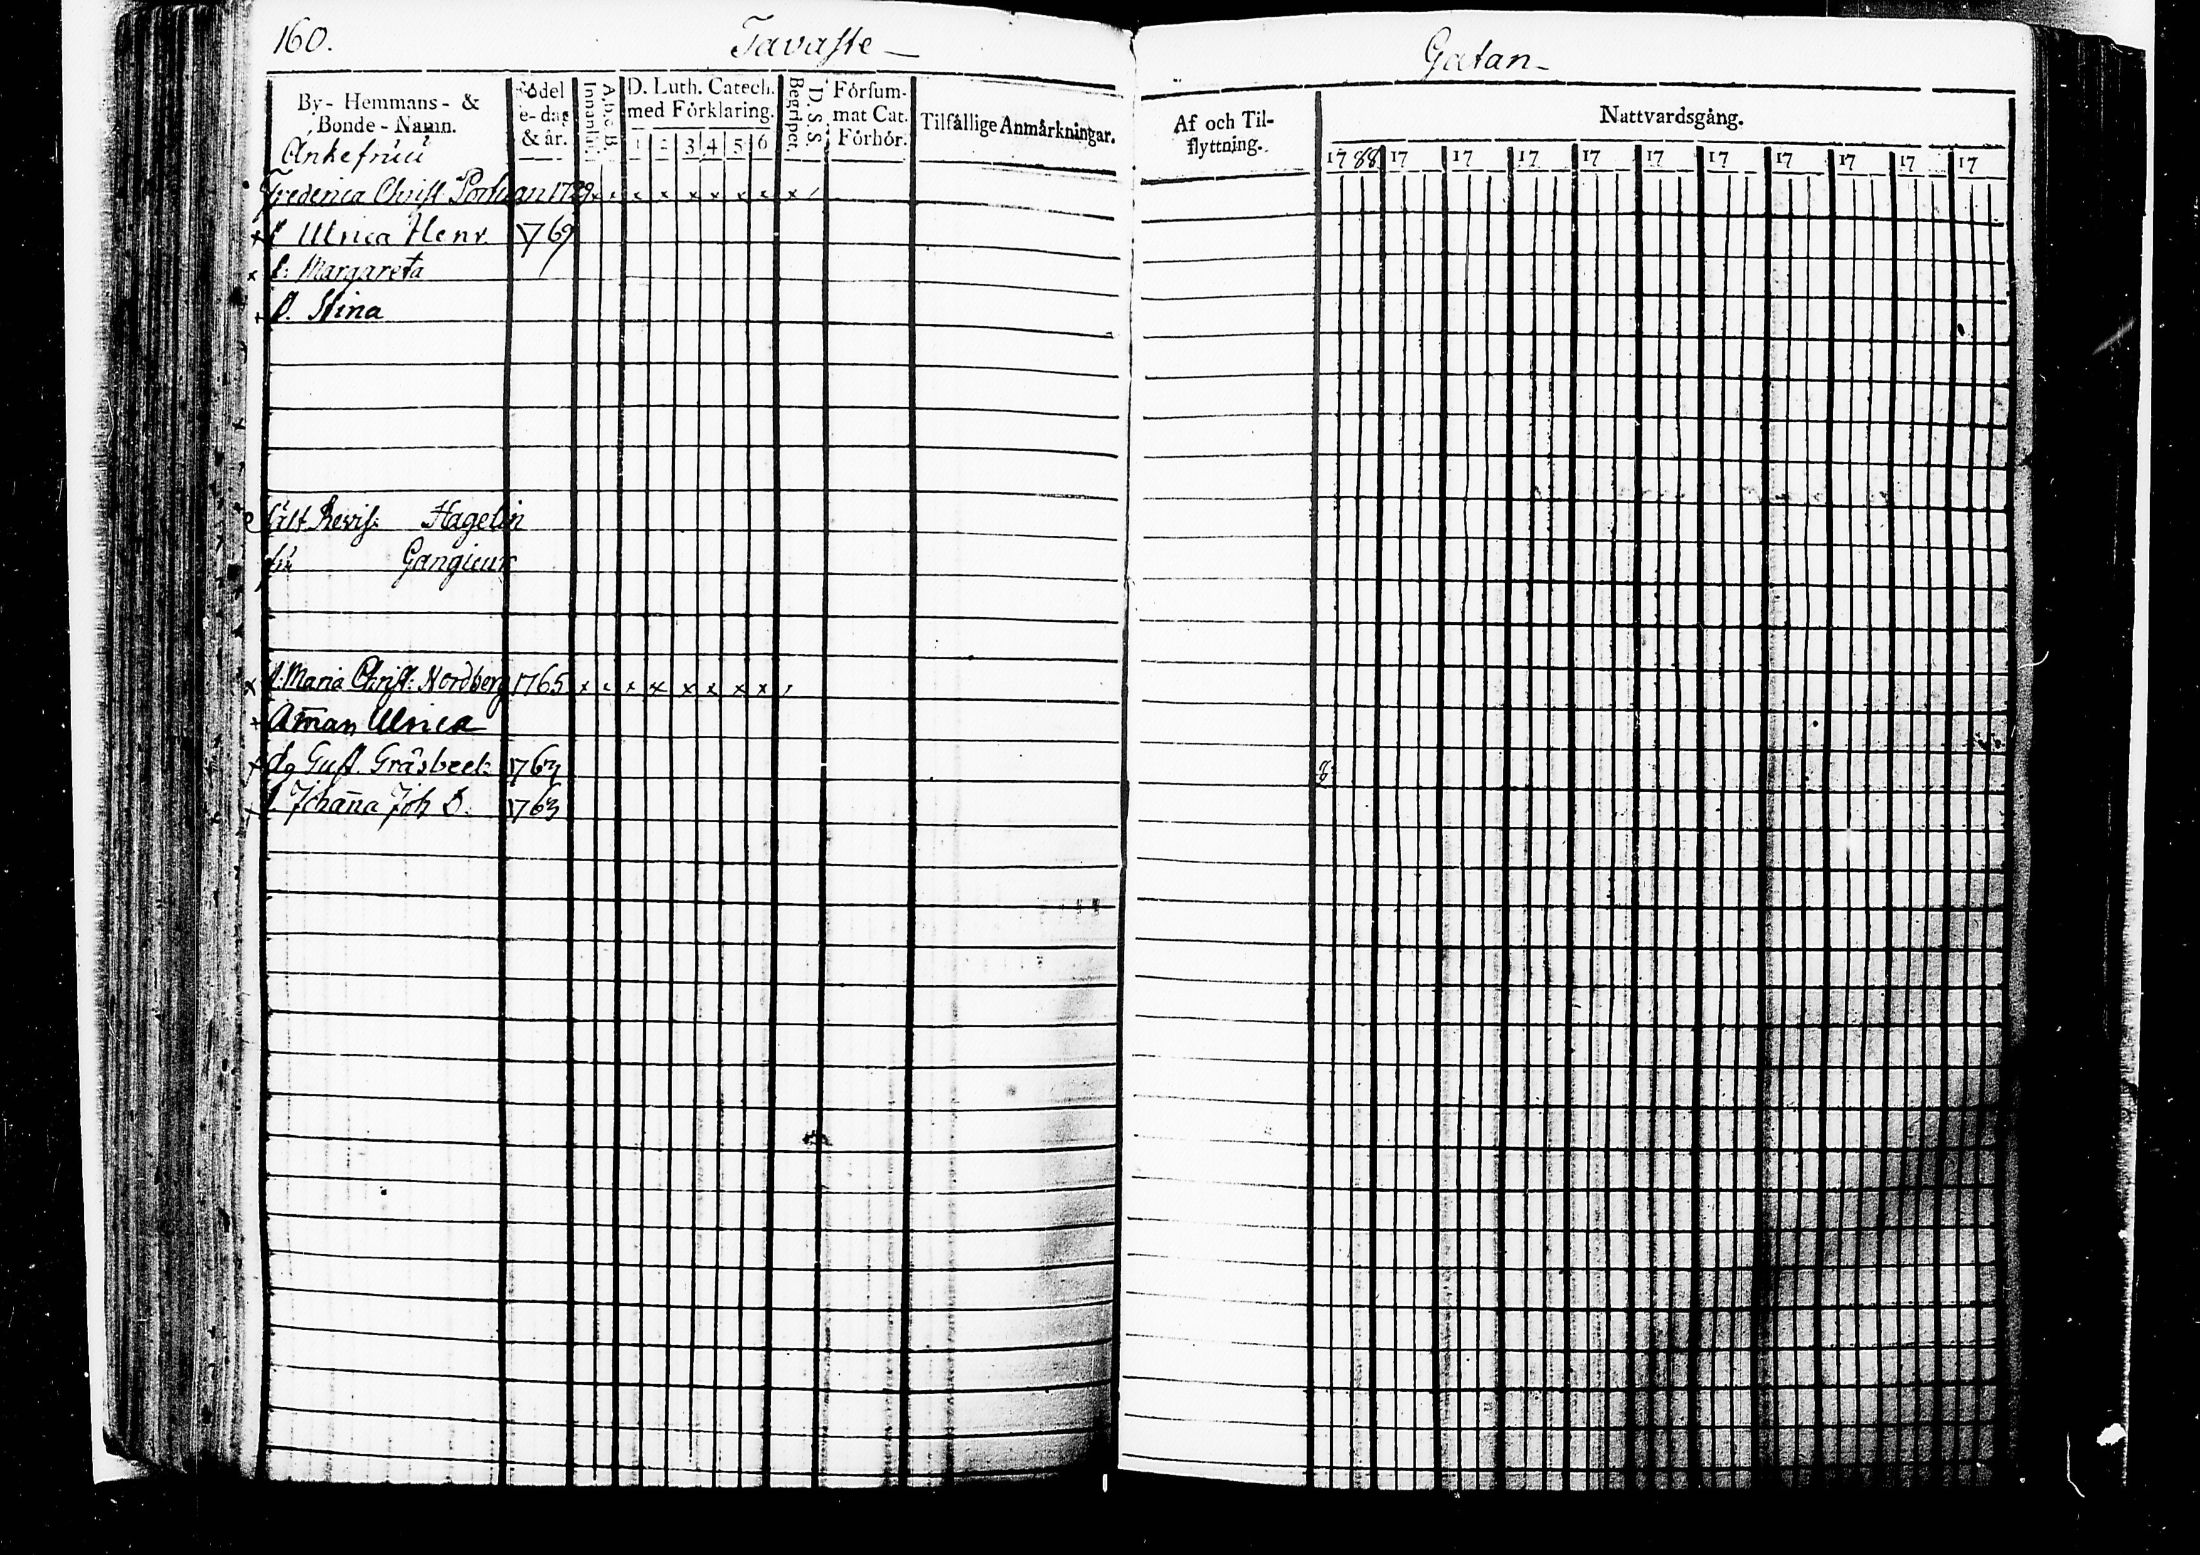 160.
Tavaste-
By- Hemmans- & Bonde-Namn.
Födel
e-dag
& år.
A.b.c.B.
Innantil.
D. Luth. Catech.
med Förklaring.
1 2 3 4 5 6
D. S. S.
Begriper.
Försum-
mat Cat.
Förhör.
Tilfällige Anmärkningar.
Änkefruu
Frederica Christ. Porhan 1729 x x x x x x x x x
+ P Ulrica Henr. 1769
x P: Margareta
+ P. Stina
Revis: Hagelin
fru Gangieur
x P: Maria Christ: Nordberg 1765 x x x x x x x x
+ Am̄an Ulrica
+ dg Gust. Gråsbeck
+ P Johan̄a Joh D. 1763
Gatan-
Af och Til-
flyttning.
Nattvardsgång.
1788 17 17 17 17 17 17 17 17 17 17